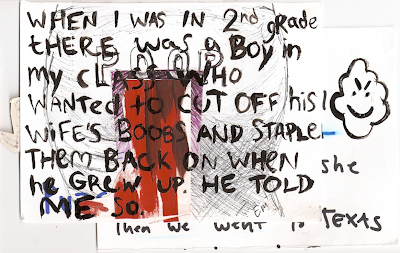 WHEN I WAS IN 2nd grade
tHERE was a Boy in
my cLASS WHO
WANTED to CUT OFF his
WiFE'S BOOBS AND STAPLE
THEM BACK ON WHEN she
he GREW UP. HE TOLD
ME SO.
Then we went to TEXAS
POOP
EM